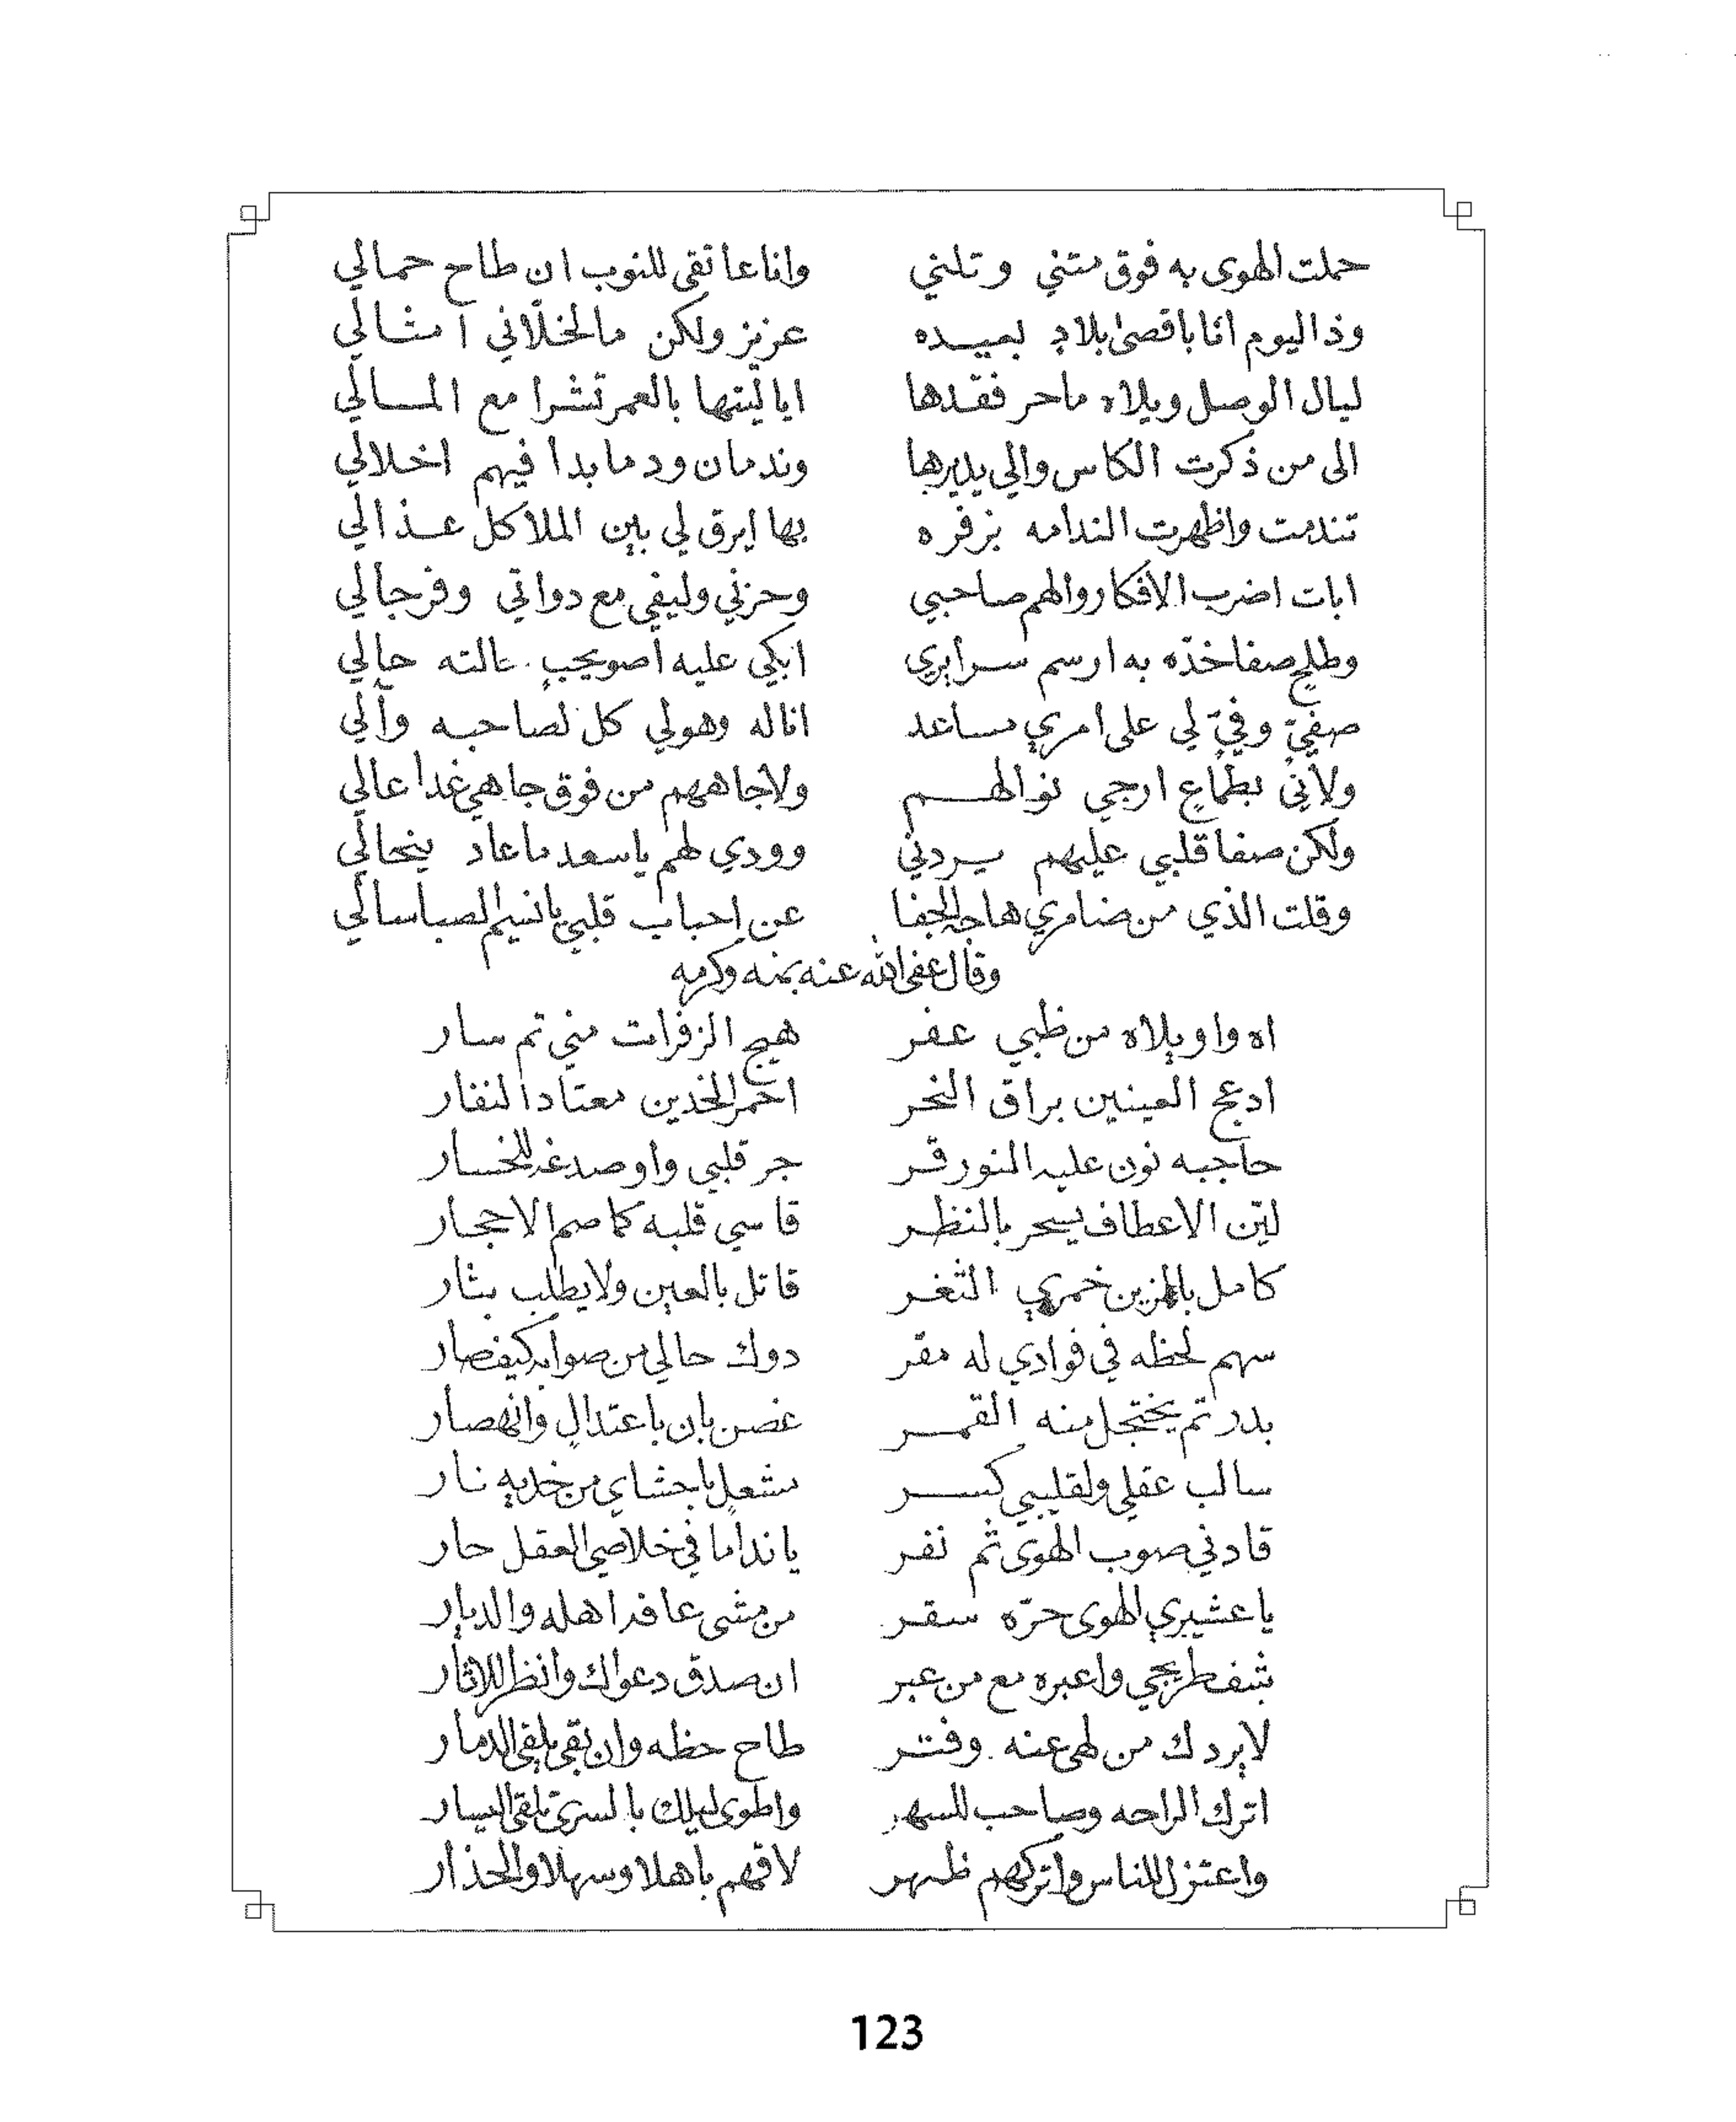 حملت الهوى به فوق متني وتلني وانا عاتقى للنوب ان طاح حمالي
وذا اليوم انا باقصى بلاد بعيده عزيز ولكن مالخلّاني امثالي
ليال الوصل ويلاه ماحر فقدها اياليتها بالعمر تشرا مع المالي
الى من ذكرت الكاس والي يديرها وندمان ود مابدا فيهم اخلالي
تندمت واظهرت الندامه بزفره بها ايرق لي بين الملا كل عذالي
ابات اضرب الافكار والهم صاحبي وحزني وليفي مع دواتي وفرجالي
وطلح صفا خدّه به ارسم سرايري ابكي عليه اصويحب حالي
صفيّ وفيّ لي على امري مساعد اناله وهولي كل لصاحبه وآلي
ولاني بطماع ارجي نوالهم ولاجاههم من فوق جاهي غدا عالي
ولكن صفا قلبي عليهم يردني وودي لهم ياسعد ماعاد ينحالي
وقلت الذي من ضامري هاجه الجفا عن احباب قلبي يانسيم الصبا سالي
وقال عفى الله عنه بمنه وكرمه
اه واويلاه من ظبي عفر هيج الزفرات مني ثم سار
ادعج العينين براق النحر احمر الخدين معتاد النفار
حاجبه نون عليه النور قر جر قلبي واو صدغه للخسار
ليّن الاعطاف يسحر بالنظر قاسي قلبه كما صم الاحجار
كامل بالزين خمري الثغر قاتل بالعين ولا يطلب بثار
سهم لحظه في فوادي له مقر دوك حالي من صوابه كيف صار
بدر تم يختجل منه القمر غصن بان باعتدال وانهصار
سالب عقلي ولقليبي كسر مشعل باحشاي من خديه نار
قادني صوب الهوى ثم نفر يا نداما في خلاصي العقل حار
يا عشيري الهوى حرّه سقر من مشى عاف اهله والديار
شف طريجي واعبره مع من عبر ان صدق دعواك وانظر للاثار
لا يردك من لهى عنه وفتر طاح حظه وان بقى يلقى الدمار
اترك الراحه وصاحب للسهر واطوى ليلك بالسرى تلقى اليسار
واعتزل للناس واتركهم ظهر لاقهم باهلا وسهلا والحذار
123